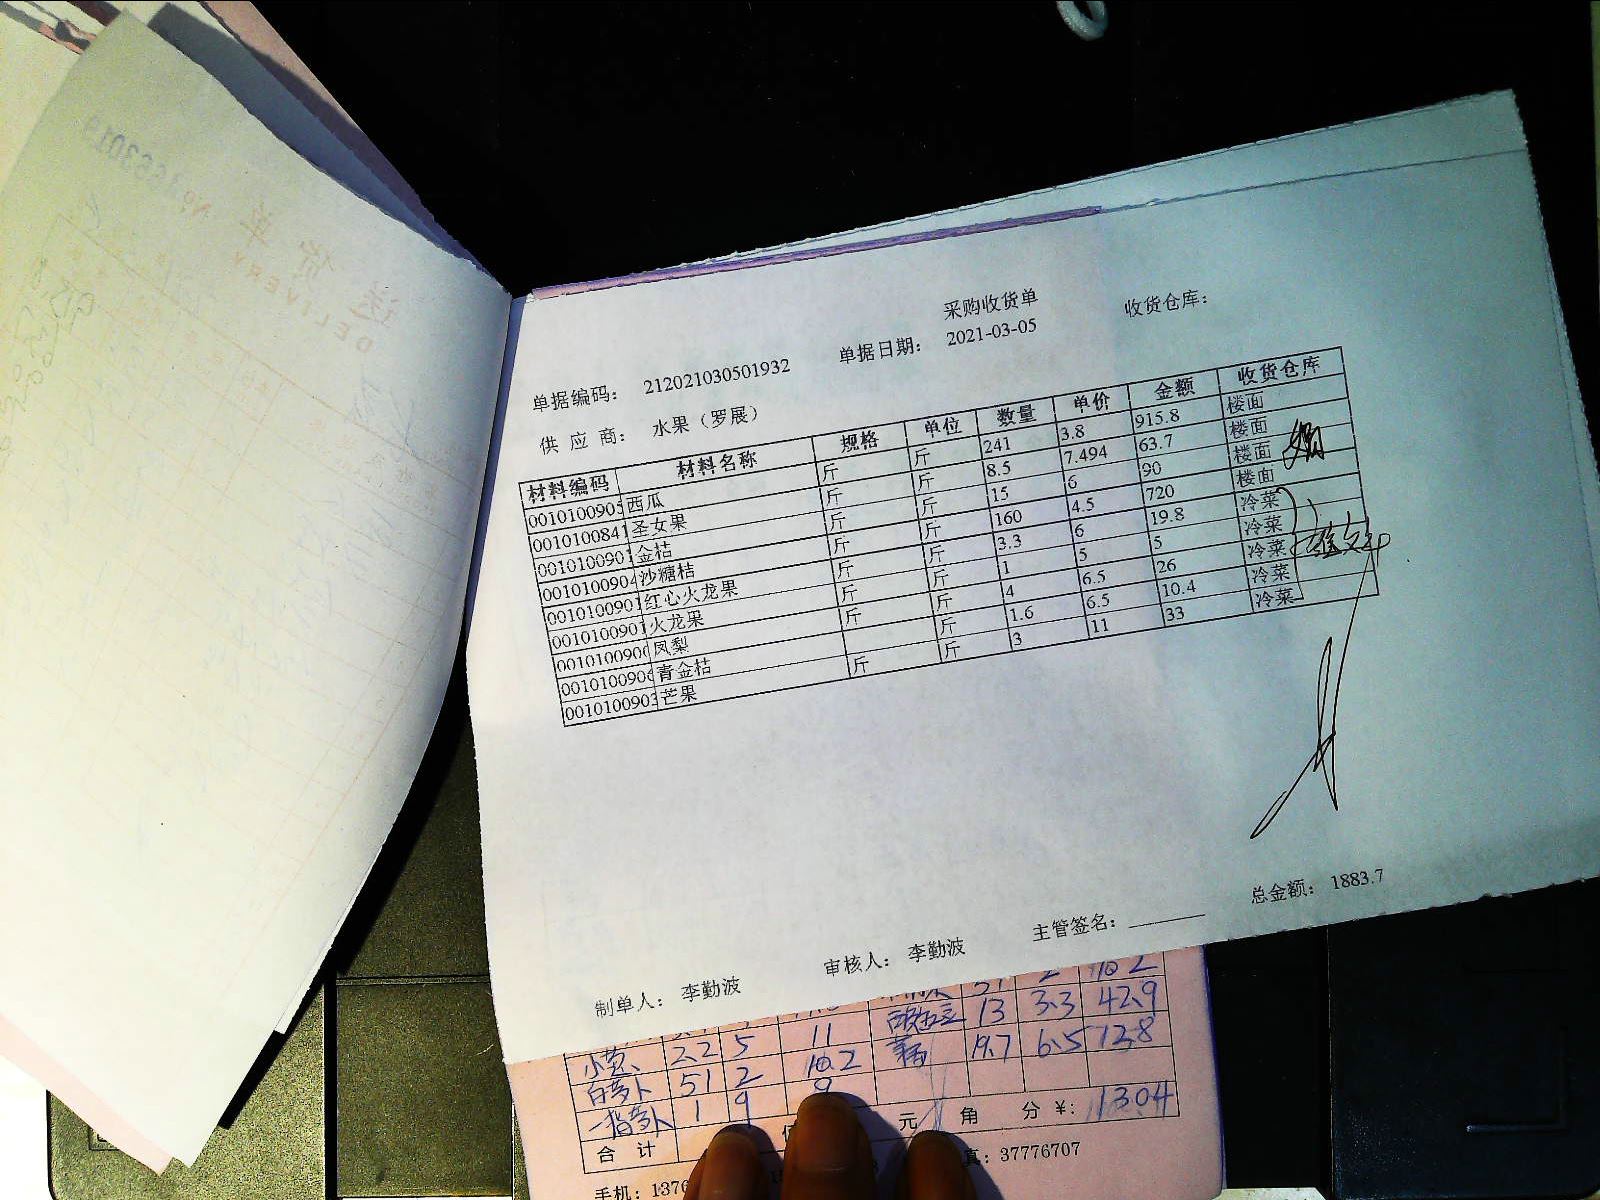 采购收货单
单据编码： 212021030501932 单据日期： 2021-03-05 收货仓库：
供 应 商： 水果（罗展）
材料编码 材料名称 规格 单位 数量 单价 金额 收货仓库
001010090 西瓜 斤 斤 241 3.8 915.8 楼面
0010100841 圣女果 斤 斤 8.5 7.494 63.7 楼面
001010090 金桔 斤 斤 15 6 90 楼面
001010090 沙糖桔 斤 斤 160 4.5 720 楼面
001010090 红心火龙果 斤 斤 3.3 6 19.8 冷菜
001010090 火龙果 斤 斤 1 5 5 冷菜
001010090 凤梨 斤 斤 4 6.5 26 冷菜
001010090 青金桔 斤 1.6 6.5 10.4 冷菜
001010090 芒果 斤 斤 3 11 33 冷菜
总金额： 1883.7
制单人： 李勤波 审核人： 李勤波 主管签名：
51 2 10.2
小芫 2.2 5 11 13 3.3 42.9
白萝卜 51 2 10.2 19.7 6.5 12.8
1 9 9
合 计 元 角 分 ¥: 1304
手机：1376 真：37776707
送 货 单
DELIVERY
No